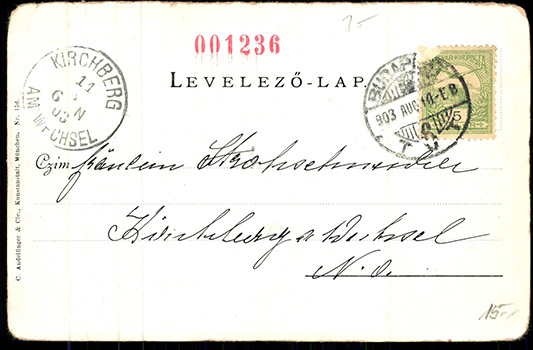 001236
LEVELEZŐ-LAP
KIRCHBERG
11
03
AM WECHSEL
BUDAPE
903 AUG 10-E B
5
Czim Fräulein
Kirchberg a Wechsel
N. ö.
C. Andelfinger & Cie., Kunstanstalt, München. Nr. 156.
15-